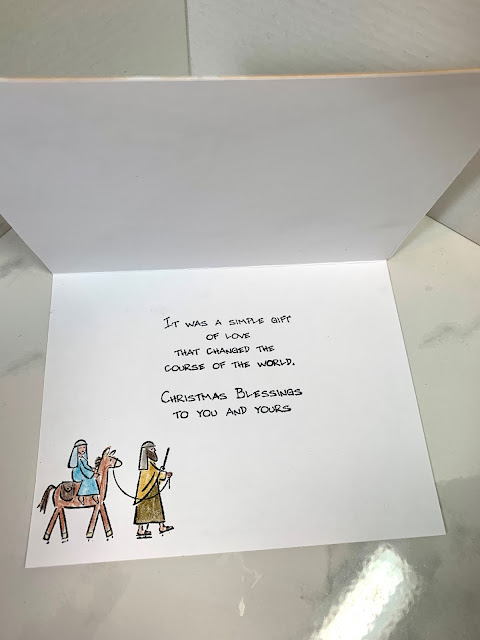 It was a simple gift
of love
that changed the
course of the world.
Christmas Blessings
to you and yours